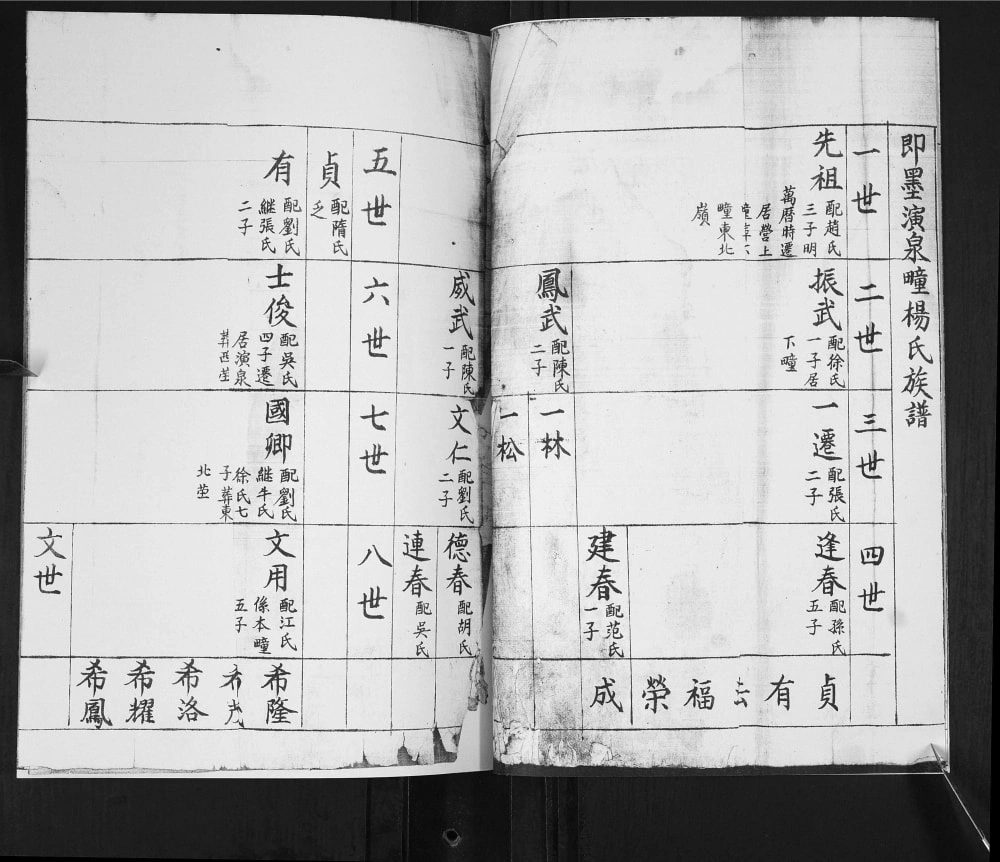 即墨演泉疃楊氏族譜
一世
先祖
配趙氏
三子明
萬曆時遷
居營上
疃東北
嶺
二世
振武
配徐氏
一子居
下疃
鳳武
配陳氏
二子
威武
配陳氏
一子
三世
一遷
配張氏
二子
一林
一松
文仁
配劉氏
二子
四世
逢春
配孫氏
五子
建春
配范氏
一子
德春
配胡氏
連春
配吳氏
貞
有
福
榮
成
五世
貞
配隋氏
乏
有
配劉氏
繼張氏
二子
六世
士俊
配吳氏
四子遷
居演泉
葬西茔
七世
國卿
配劉氏
继牛氏
徐氏七
子葬東
北茔
八世
文用
配江氏
係本疃
五子
文世
希隆
希洛
希耀
希鳳